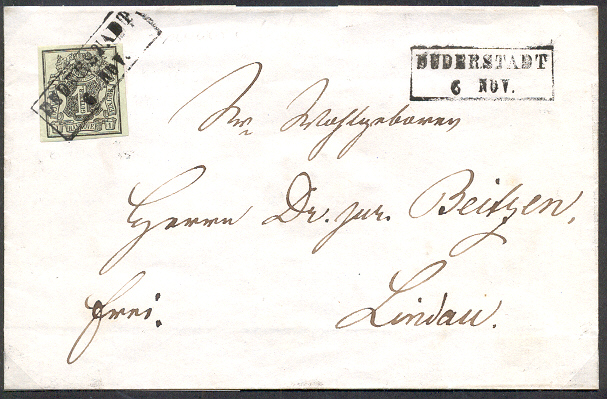 DUDERSTADT
6 NOV.
DUDERSTADT
6 NOV.
HANNOVER
Sr. Wohlgeboren
Herrn Dr. jur. Beitzen,
frei.
Lindau.